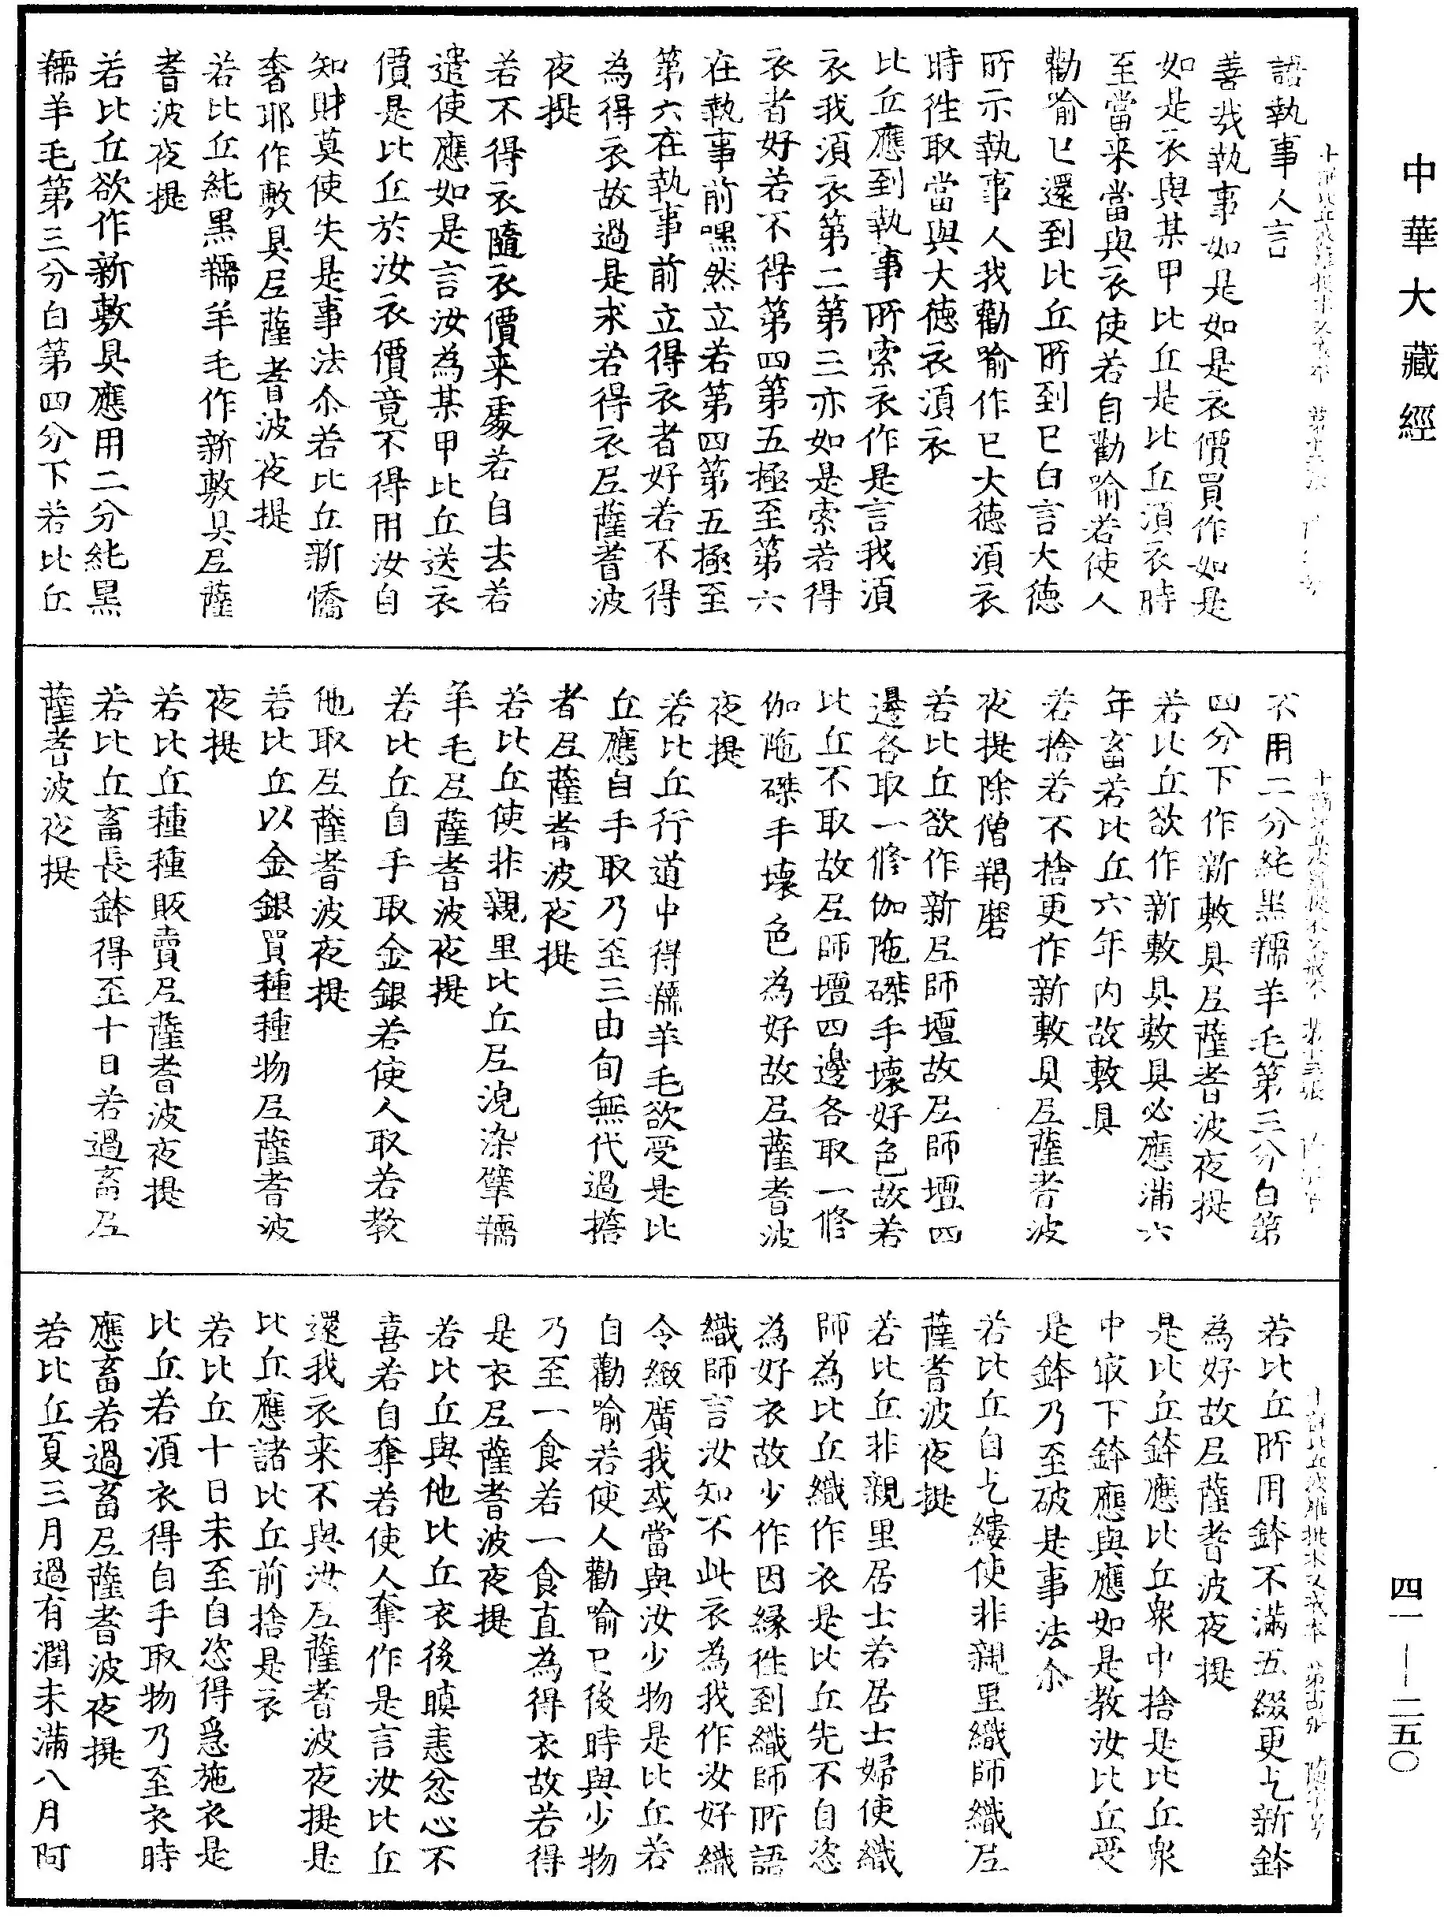 中華大藏經
語執事人言
善哉執事如是如是衣價買作如是
如是衣與某甲比丘是比丘須衣時
至當来當與衣使若自勸喻若使人
勸喻已還到比丘所到已白言大德
所示執事人我勸喻作已大德須衣
時徃取當與大德衣須衣
比丘應到執事所索衣作是言我須
衣我須衣第二第三亦如是索若得
衣者好若不得第四第五極至第六
在執事前嘿然立若第四第五極至
第六在執事前立得衣者好若不得
為得衣故過是求若得衣尼薩耆波
夜提
若不得衣隨衣價来處若自去若
遣使應如是言汝為某甲比丘送衣
價是比丘於汝衣價竟不得用汝自
知財莫使失是事法尒若比丘新憍
奢耶作敷具尼薩耆波夜提
若比丘純黑羺羊毛作新敷具尼薩
耆波夜提
若比丘欲作新敷具應用二分純黑
羺羊毛第三分白第四分下若比丘
不用二分純黑羺羊毛第三分白第
四分下作新敷具尼薩耆波夜提
若比丘欲作新敷具敷具必應滿六
年畜若比丘六年內故敷具
若捨若不捨更作新敷具尼薩耆波
夜提除僧羯磨
若比丘欲作新尼師壇故尼師壇四
邊各取一修伽陁磔手壞好色故若
比丘不取故尼師壇四邊各取一修
伽陁磔手壞色為好故尼薩耆波
夜提
若比丘行道中得羺羊毛欲受是比
丘應自手取乃至三由旬無代過擔
者尼薩耆波夜提
若比丘使非親里比丘尼浣染擘羺
羊毛尼薩耆波夜提
若比丘自手取金銀若使人取若教
他取尼薩耆波夜提
若比丘以金銀買種種物尼薩耆波
夜提
若比丘種種販賣尼薩耆波夜提
若比丘畜長鉢得至十日若過畜尼
薩耆波夜提
若比丘所用鉢不滿五綴更乞新鉢
為好故尼薩耆波夜提
是比丘鉢應比丘衆中捨是比丘衆
中㝡下鉢應與應如是教汝比丘受
是鉢乃至破是事法尒
若比丘自乞縷使非親里織師織尼
薩耆波夜提
若比丘非親里居士若居士婦使織
師為比丘織作衣是比丘先不自恣
為好衣故少作因緣徃到織師所語
織師言汝知不此衣為我作汝好織
令緻廣我或當與汝少物是比丘若
自勸喻若使人勸喻已後時與少物
乃至一食若一食直為得衣故若得
是衣尼薩耆波夜提
若比丘與他比丘衣後瞋恚忿心不
喜若自奪若使人奪作是言汝比丘
還我衣来不與汝尼薩耆波夜提是
比丘應諸比丘前捨是衣
若比丘十日未至自恣得急施衣是
比丘若須衣得自手取物乃至衣時
應畜若過畜尼薩耆波夜提
若比丘夏三月過有潤未滿八月阿
四一—二五〇